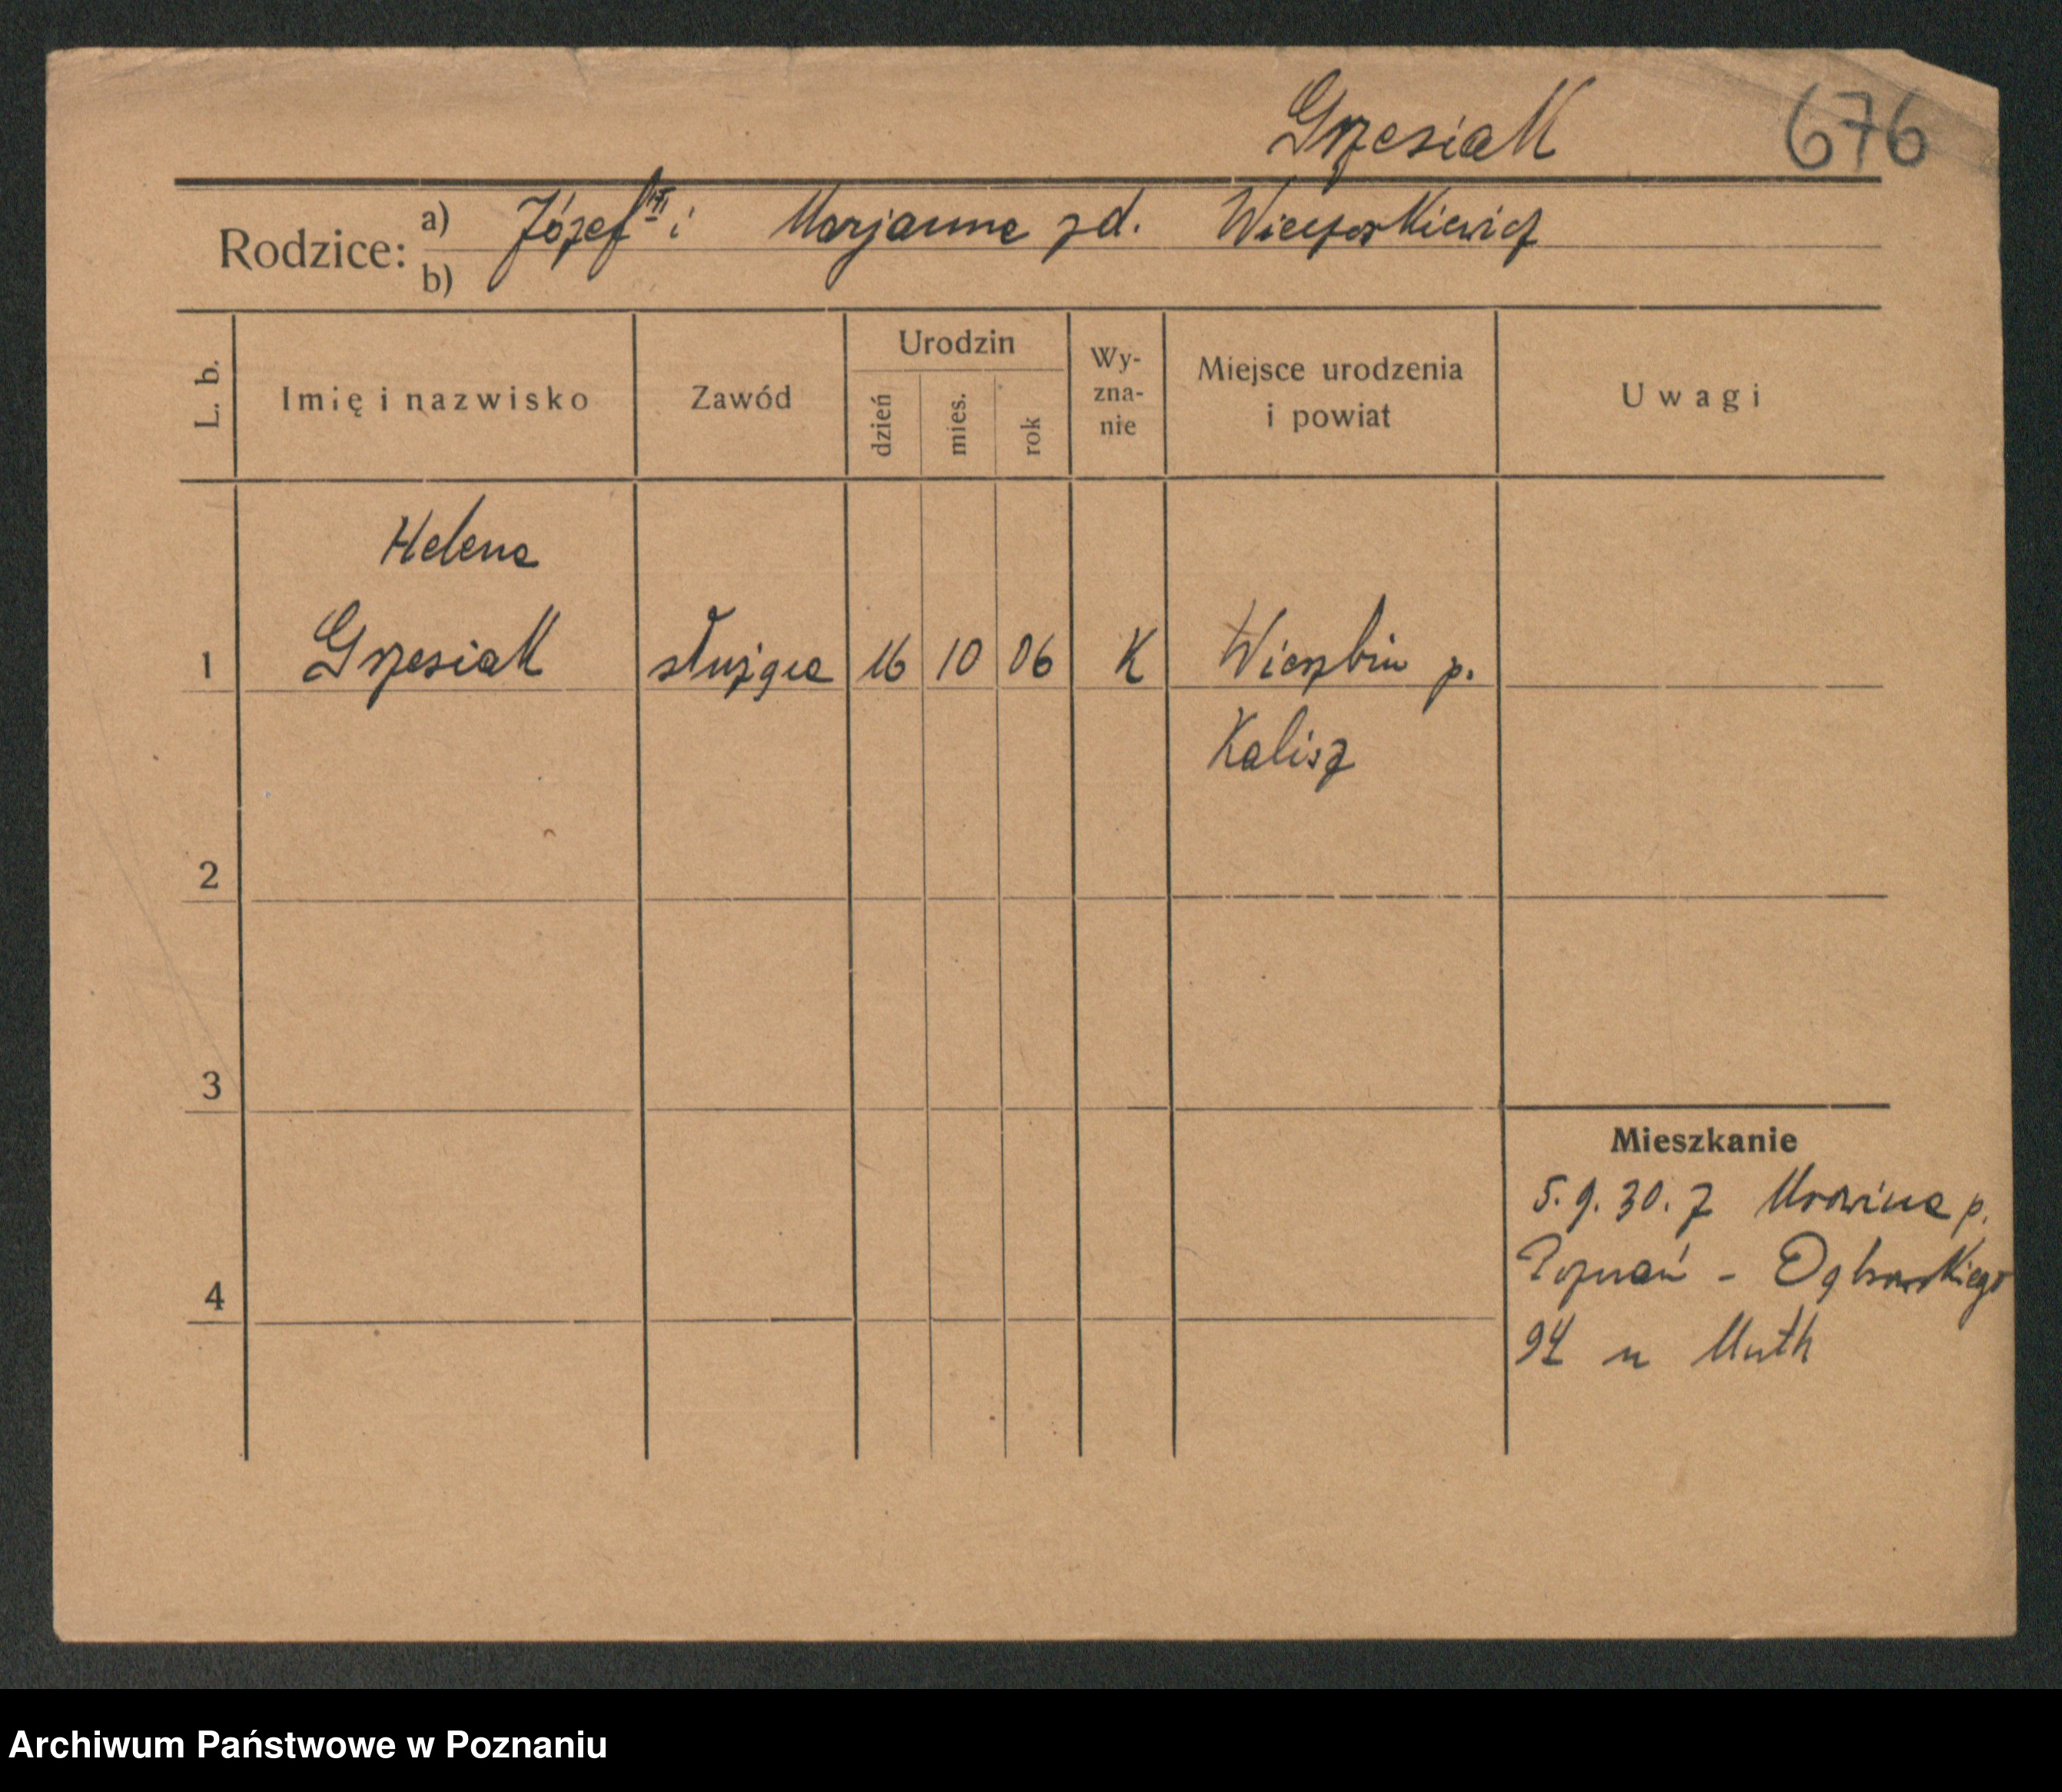 Grzesiak 676
Rodzice: a) Józef i Marjanna zd. Wieczorkiewicz
b)
L. b. Imię i nazwisko Zawód Urodzin dzień mies. rok Wy-zna-nie Miejsce urodzenia i powiat Uwagi
Helena
1 Grzesiak służąca 16 10 06 K Wierzbin p.
Kalisz
2
3
Mieszkanie
5. 9. 30. z Mrowina p.
Poznań - Dąbrowskiego
4
94 u Muth
Archiwum Państwowe w Poznaniu